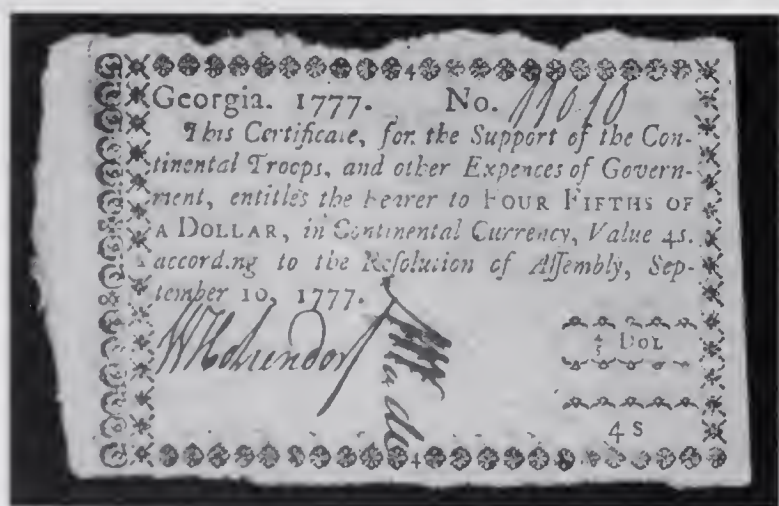 4
Georgia. 1777. No. 11010
This Certificate, for the Support of the Con-
tinental Troops, and other Expences of Govern-
ment, entitles the Bearer to FOUR FIFTHS OF
A DOLLAR, in Continental Currency, Value 4s.
according to the Resolution of Assembly, Sep-
tember 10, 1777.
4/5 DOL
4 S
4